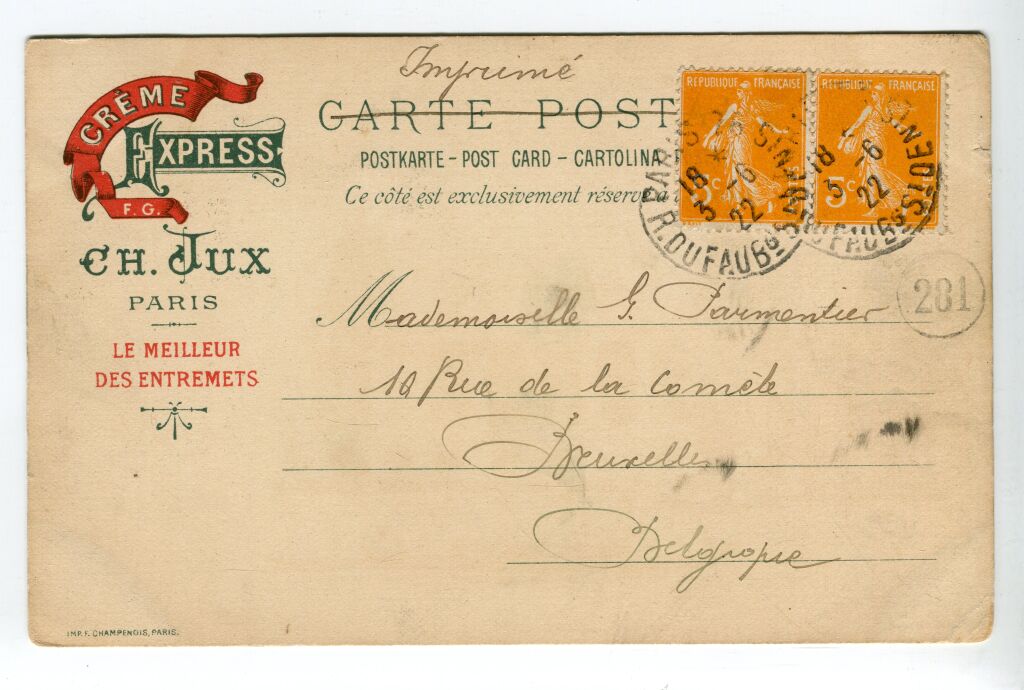 Imprimé
CARTE POST
POSTKARTE - POST CARD - CARTOLINA
Ce côté est exclusivement réservé à
CRÈME
EXPRESS
F. G.
CH. JUX
PARIS
LE MEILLEUR
DES ENTREMETS
REPUBLIQUE FRANÇAISE
5c
REPUBLIQUE FRANÇAISE
5c
PARIS
R. DU FAUBG ST DENIS
18
3 -6
22
FAUBG ST DENIS
18
3 -6
22
281
Mademoiselle G. Parmentier
10 Rue de la Comète
Bruxelles
Belgique
IMP. F. CHAMPENOIS, PARIS.